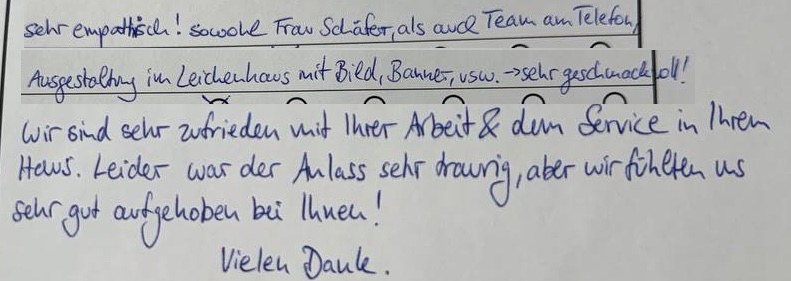 sehr empathisch! sowohl Frau Schäfer, als auch Team am Telefon,
Ausgestaltung im Leichenhaus mit Bild, Banner, usw. → sehr geschmackvoll!
Wir sind sehr zufrieden mit Ihrer Arbeit & dem Service in Ihrem
Haus. Leider war der Anlass sehr traurig, aber wir fühlten uns
sehr gut aufgehoben bei Ihnen!
Vielen Dank.